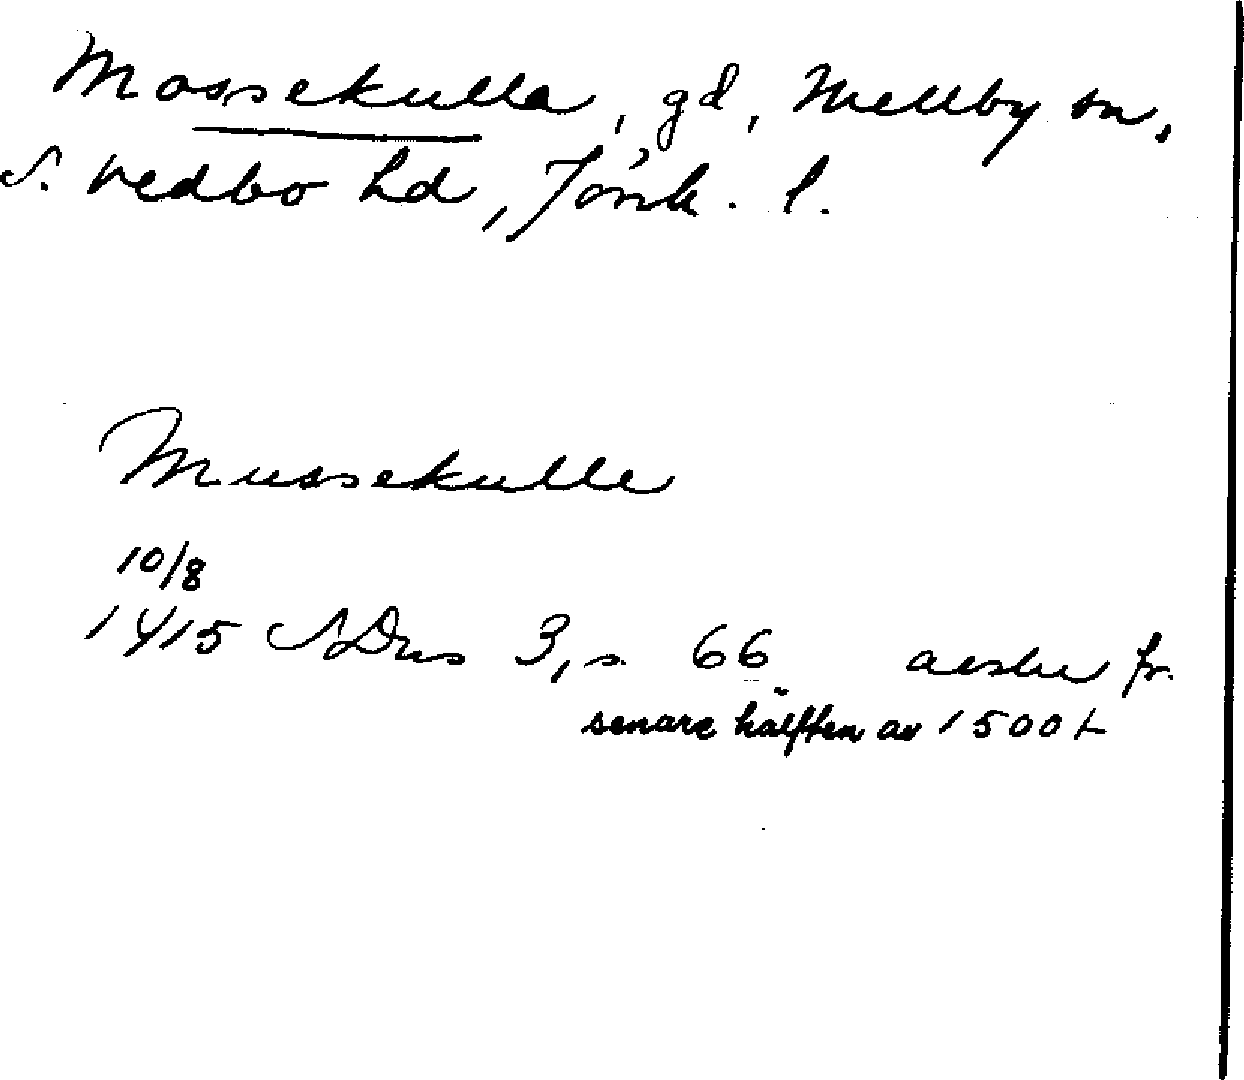 Mossekulla, gd, Mellby sn,
S. Vedbo hd, Jönk. l.
Mussekulle
10/8
1415 SDns 3, s. 66 avskr fr.
senare hälften av 1500 t